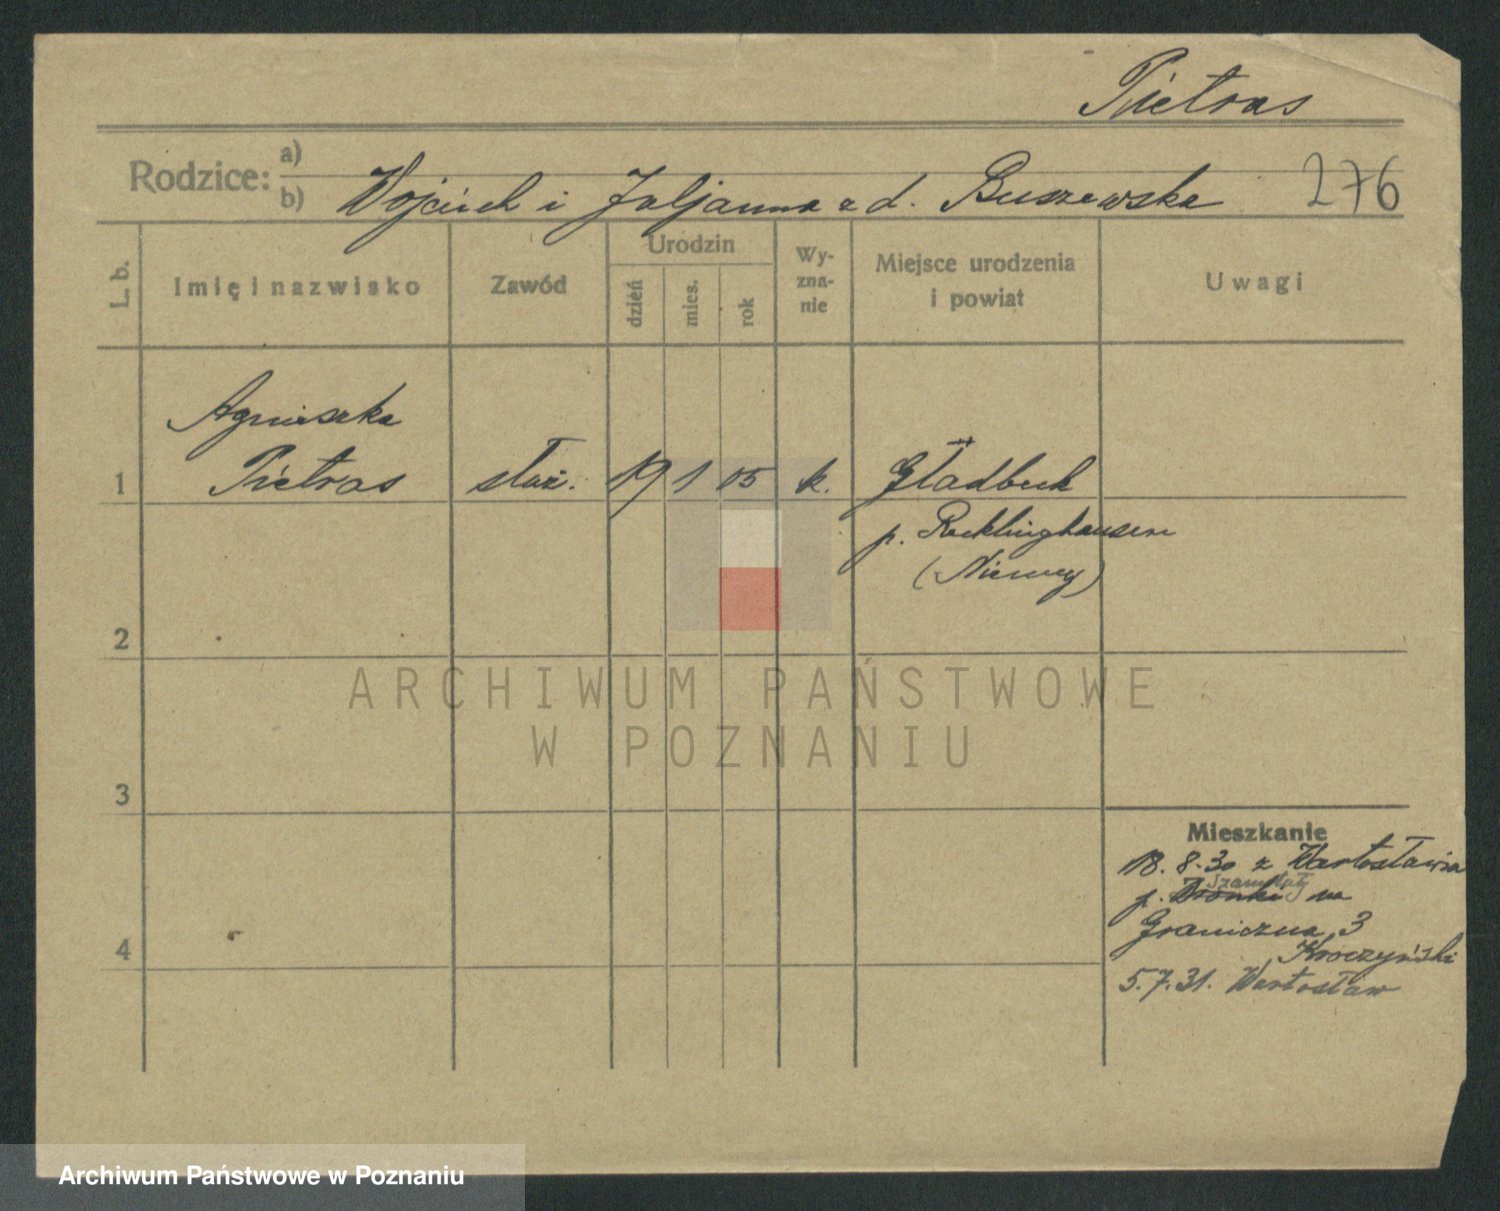 Pietras
Rodzice: a)
b) Wojciech i Juljanna z d. Buszewska 276
L. b.
Imię i nazwisko
Zawód
Urodzin
dzień
mies.
rok
Wy-
zna-
nie
Miejsce urodzenia
i powiat
Uwagi
Agnieszka
1 Pietras służ. 19 1 05 k. Gladbeck
p. Recklinghausen
(Niemcy)
2
3
4
Mieszkanie
18. 8. 30 z Wartosławia
Szamotuły
p. Wronki na
Graniczna 3
Kroczyński
5. 7. 31. Wartosław
ARCHIWUM PAŃSTWOWE
W POZNANIU
Archiwum Państwowe w Poznaniu